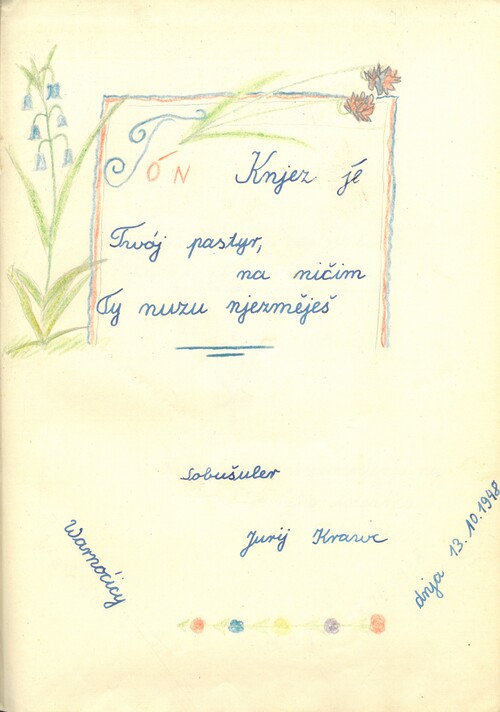 TÓN Knjez je
Twój pastyr,
na ničim
Ty nuzu njezměješ
Sobušuler
Jurij Krawc
Warnoćicy
dnja 13.10.1948